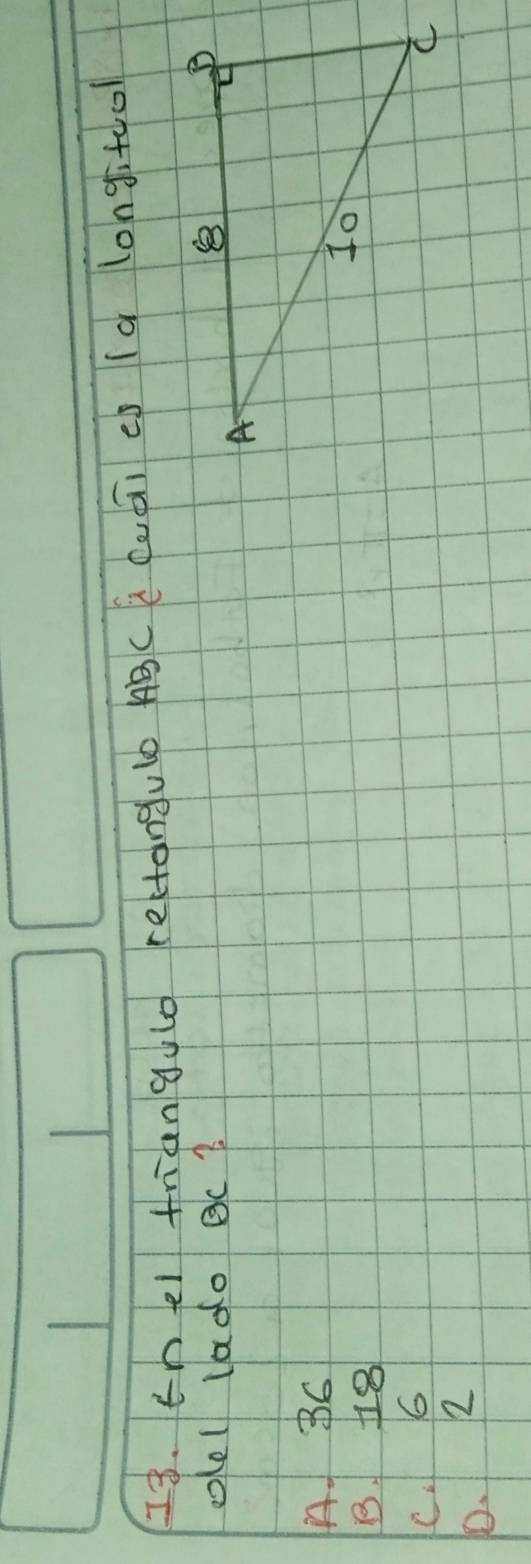 13. En el triangulo rectangulo ABC ¿ cuál es la longitud
del lado BC ?
A. 36
B. 18
C. 6
D. 2
A
8
B
10
C